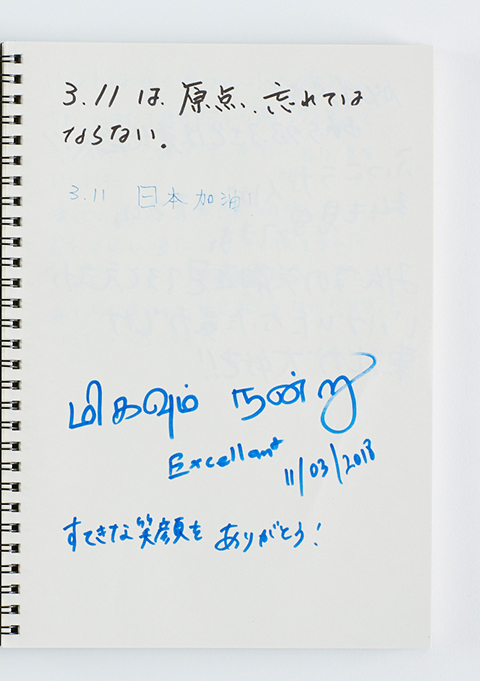 3.11 は 原点、忘れては
ならない。
3.11 日本加油!
மிகவும் நன்று
Excellant
11/03/2018
すてきな笑顔を ありがとう!